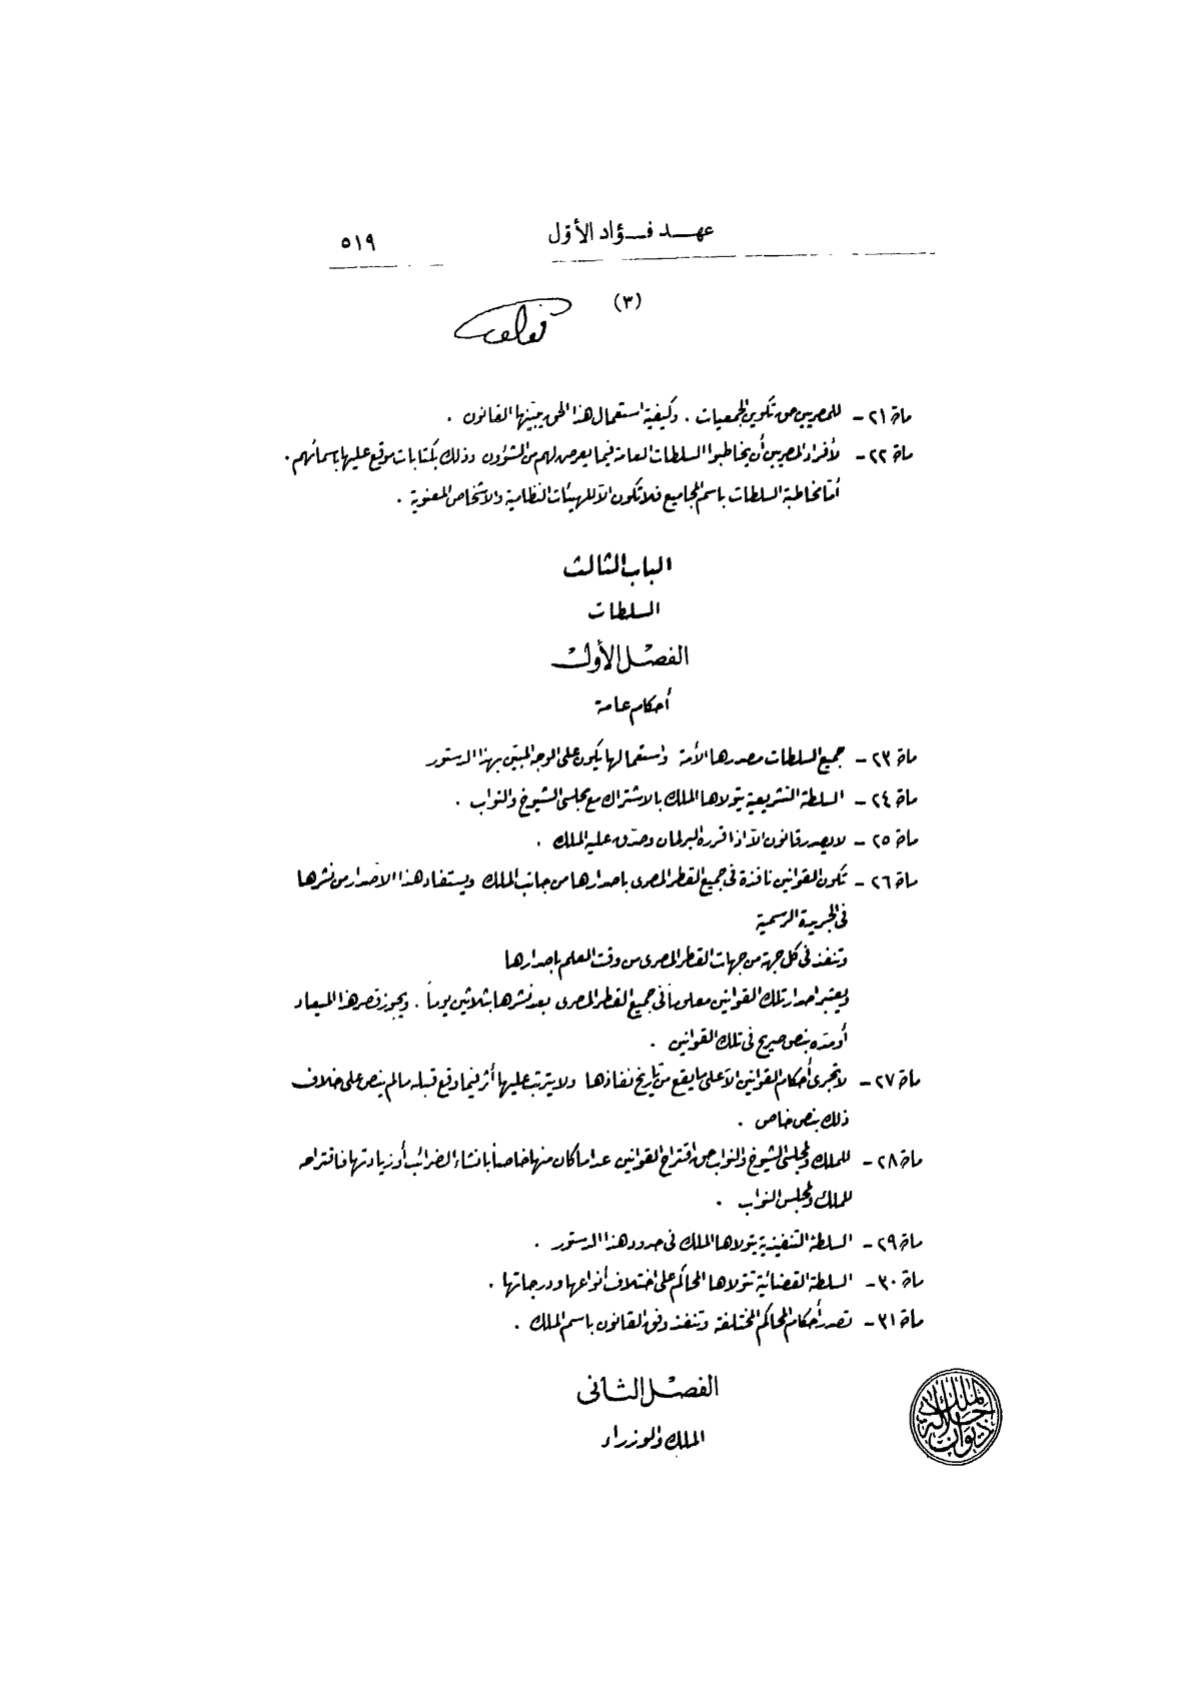 عهد فؤاد الأول
٥١٩
(٣)
فؤاد
مادة ٢١ – للمصريين حق تكوين الجمعيات . وكيفية استعمال هذا الحق يبيّنها القانون .
مادة ٢٢ – لأفراد المصريين أن يخاطبوا السلطات العامة فيما يعرض لهم من الشؤون وذلك بكتابات موقع عليها باسمائهم .
أمّا مخاطبة السلطات باسم المجاميع فلا تكون الاّ للهيئات النظامية والاشخاص المعنوية .
الباب الثالث
السلطات
الفصل الأول
أحكام عامة
مادة ٢٣ – جميع السلطات مصدرها الأمة واستعمالها يكون على الوجه المبيّن بهذا الدستور
مادة ٢٤ – السلطة التشريعية يتولاها الملك بالاشتراك مع مجلسى الشيوخ والنواب .
مادة ٢٥ – لا يصدر قانون الاّ اذا قرره البرلمان وصدّق عليه الملك .
مادة ٢٦ – تكون القوانين نافذة فى جميع القطر المصرى باصدارها من جانب الملك ويستفاد هذا الاصدار من نشرها
فى الجريدة الرسمية
وتنفذ فى كل جهة من جهات القطر المصرى من وقت العلم باصدارها
ويعتبر اصدار تلك القوانين معلوماً فى جميع القطر المصرى بعد نشرها بثلاثين يوماً . ويجوز قصر هذا الميعاد
أو مدّه بنص صريح فى تلك القوانين .
مادة ٢٧ – لا تجرى أحكام القوانين الاّ على ما يقع من تاريخ نفاذها ولا يترتب عليها أثر فيما وقع قبله ما لم ينص على خلاف
ذلك بنص خاص .
مادة ٢٨ – للملك ولمجلسى الشيوخ والنواب حق اقتراح القوانين عدا ما كان منها خاصاً بانشاء الضرائب أو زيادتها فاقتراحه
للملك ولمجلس النواب .
مادة ٢٩ – السلطة التنفيذية يتولاها الملك فى حدود هذا الدستور .
مادة ٣٠ – السلطة القضائية تتولاها المحاكم على اختلاف أنواعها ودرجاتها .
مادة ٣١ – تصدر أحكام المحاكم المختلفة وتنفذ وفق القانون باسم الملك .
الفصل الثانى
الملك والوزراء
ديوان جلالة الملك